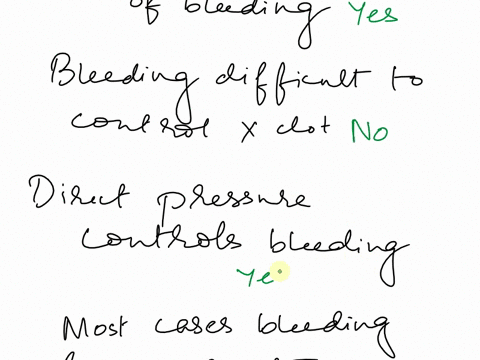 of bleeding Yes
Bleeding difficult to
control x clot No
Direct pressure
controls bleeding
Ye
Most cases bleeding